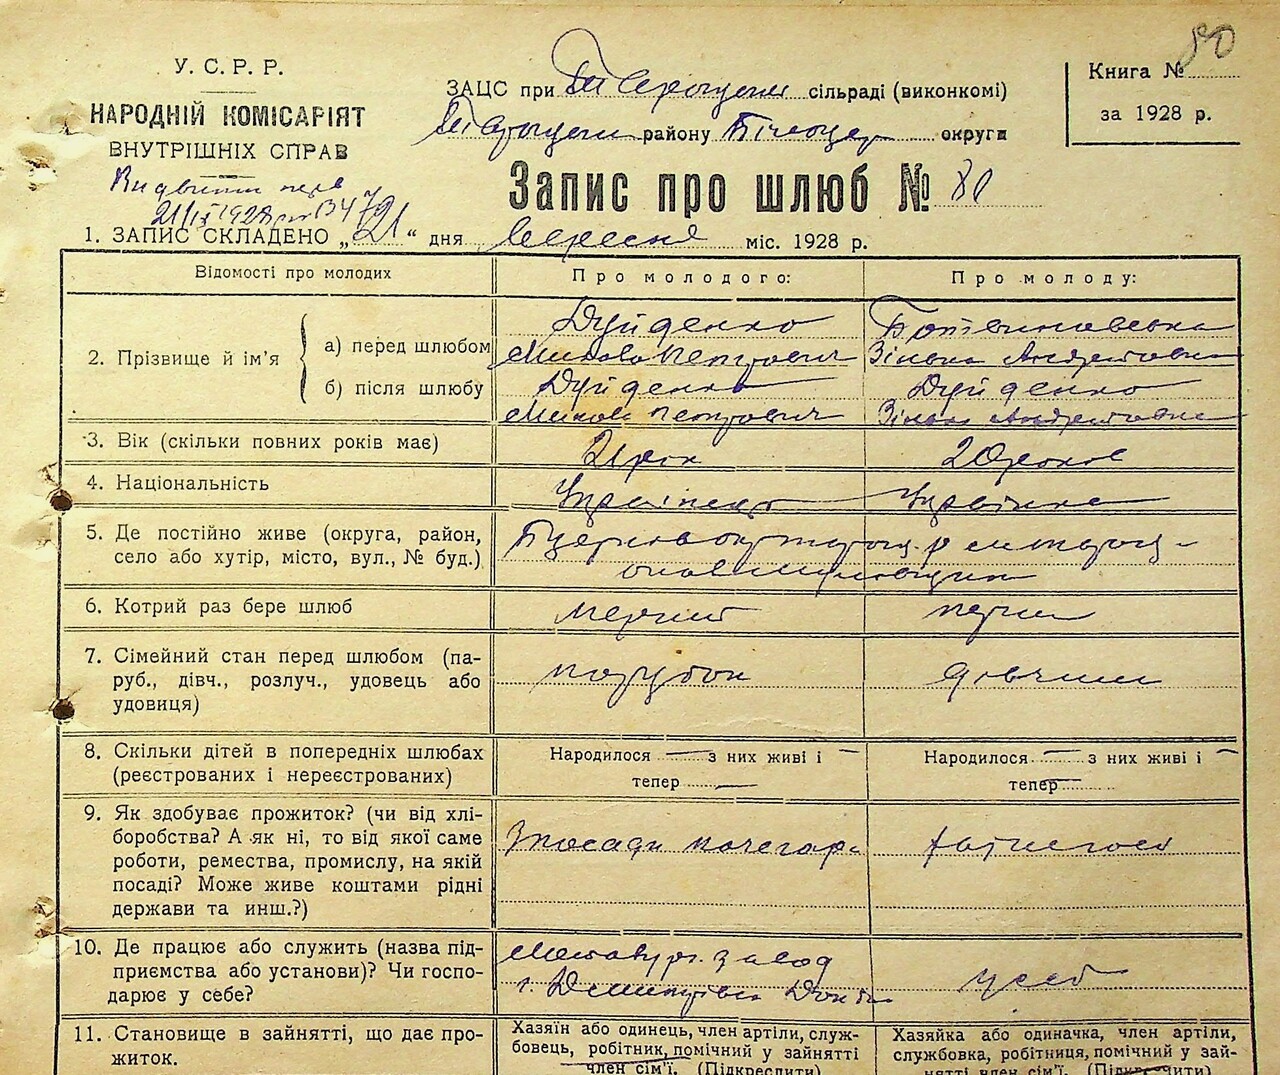 80
У. С. Р. Р.
НАРОДНІЙ КОМІСАРІЯТ
ВНУТРІШНІХ СПРАВ
ЗАЦС при сільраді (виконкомі)
району Білоцер округи
Книга №
за 1928 р.
Запис про шлюб № 80
1. ЗАПИС СКЛАДЕНО „21“ дня Вересня міс. 1928 р.
Відомості про молодих
Про молодого:
Про молоду:
2. Прізвище й ім'я
а) перед шлюбом
Дуйденко
Микола Петрович
Зінька Андреевна
б) після шлюбу
Дуйденко
Микола Петрович
Дуйденко
Зінька Андреевна
3. Вік (скільки повних років має)
21 рік
20 років
4. Національність
Українець
Українка
5. Де постійно живе (округа, район,
село або хутір, місто, вул., № буд.)
6. Котрий раз бере шлюб
перший
перший
7. Сімейний стан перед шлюбом (па-
руб., дівч., розлуч., удовець або
удовиця)
парубок
дівчина
8. Скільки дітей в попередніх шлюбах
(реєстрованих і нереєстрованих)
Народилося — з них живі і —
тепер —
Народилося — з них живі і —
тепер —
9. Як здобуває прожиток? (чи від хлі-
боробства? А як ні, то від якої саме
роботи, ремества, промислу, на якій
посаді? Може живе коштами рідні
держави та инш.?)
З посади кочегара
10. Де працює або служить (назва під-
приємства або установи)? Чи госпо-
дарює у себе?
завод
у себе
11. Становище в зайнятті, що дає про-
житок.
Хазяїн або одинець, член артіли, служ-
бовець, робітник, помічний у зайнятті
член сім'ї. (Підкреслити)
Хазяйка або одиначка, член артіли,
службовка, робітниця, помічний у зай-
нятті член сім'ї. (Підкреслити)